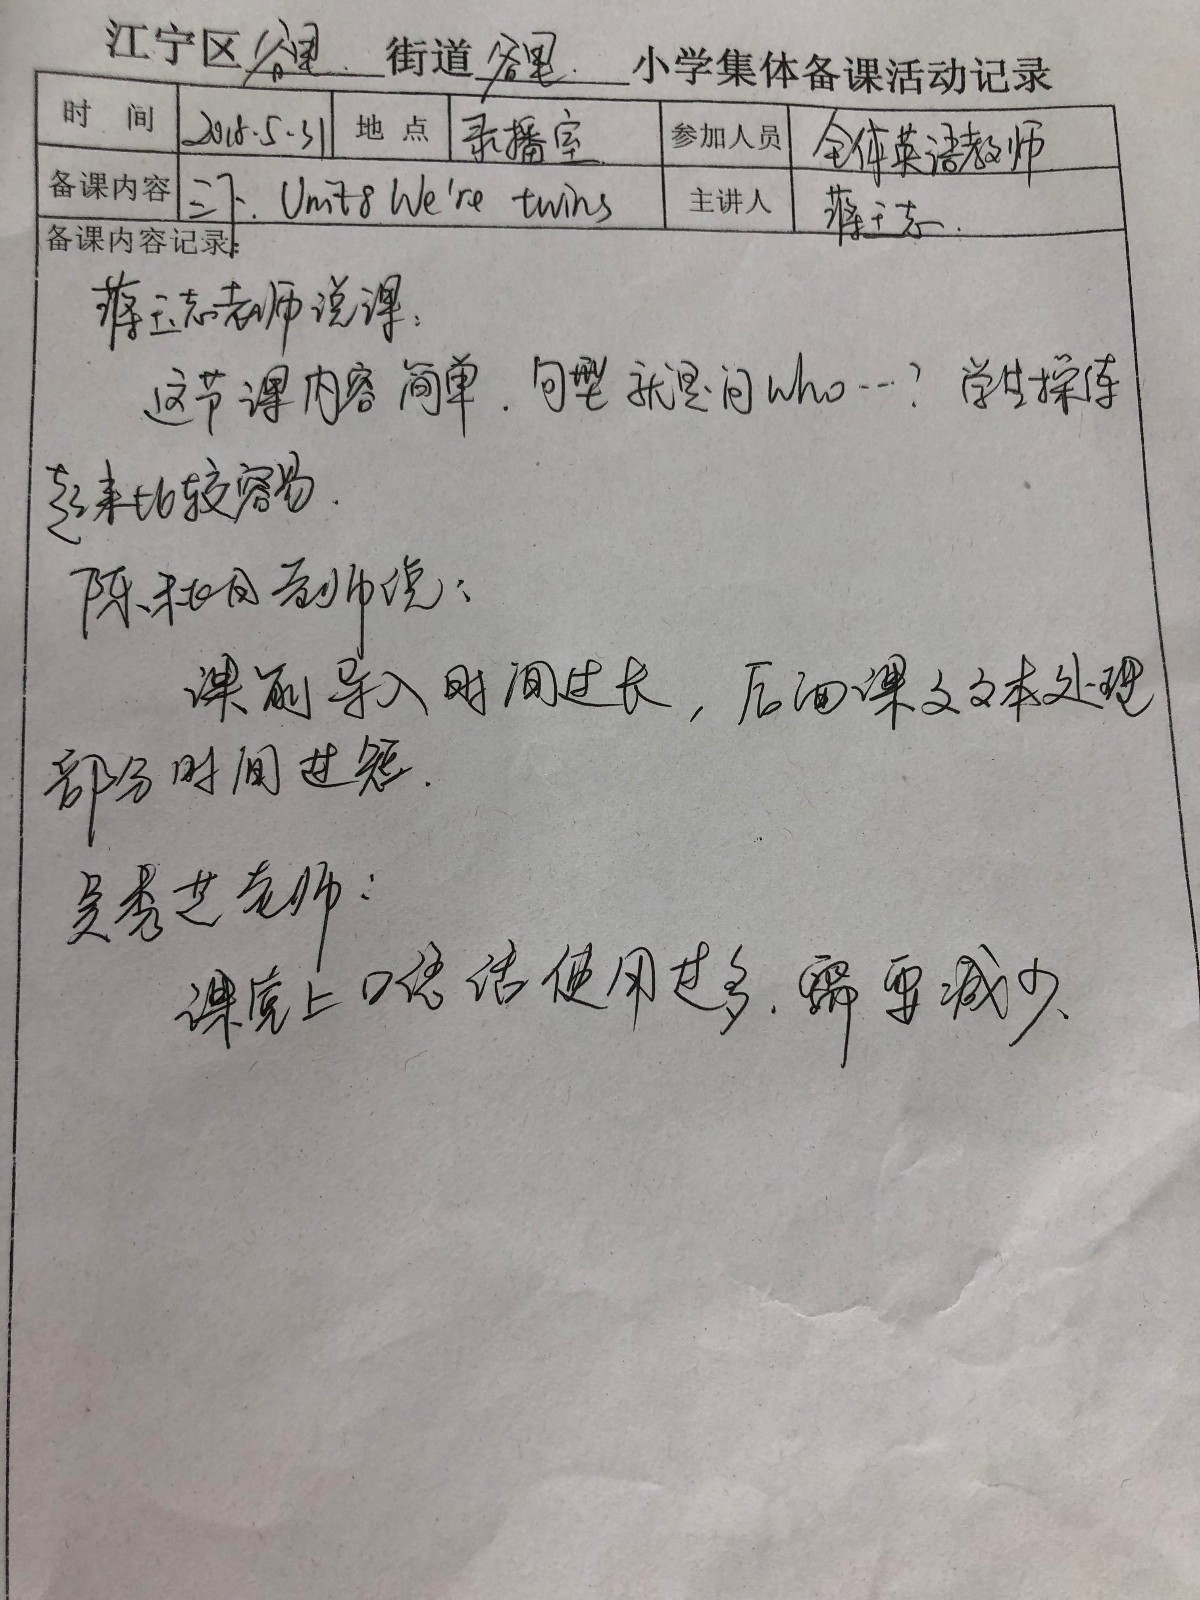 江宁区谷里街道谷里小学集体备课活动记录
时间 2018.5.31 地点 录播室 参加人员 全体英语教师
备课内容 三下. Unit8 We're twins 主讲人 蒋玉志.
备课内容记录:
蒋玉志老师说课:
这节课内容简单.句型就是问who…?学生操练
起来比较容易.
陈秋月老师说:
课前导入时间过长,后面课文文本处理
部分时间过短.
吴秀芝老师:
课堂上口语话使用过多.需要减少.